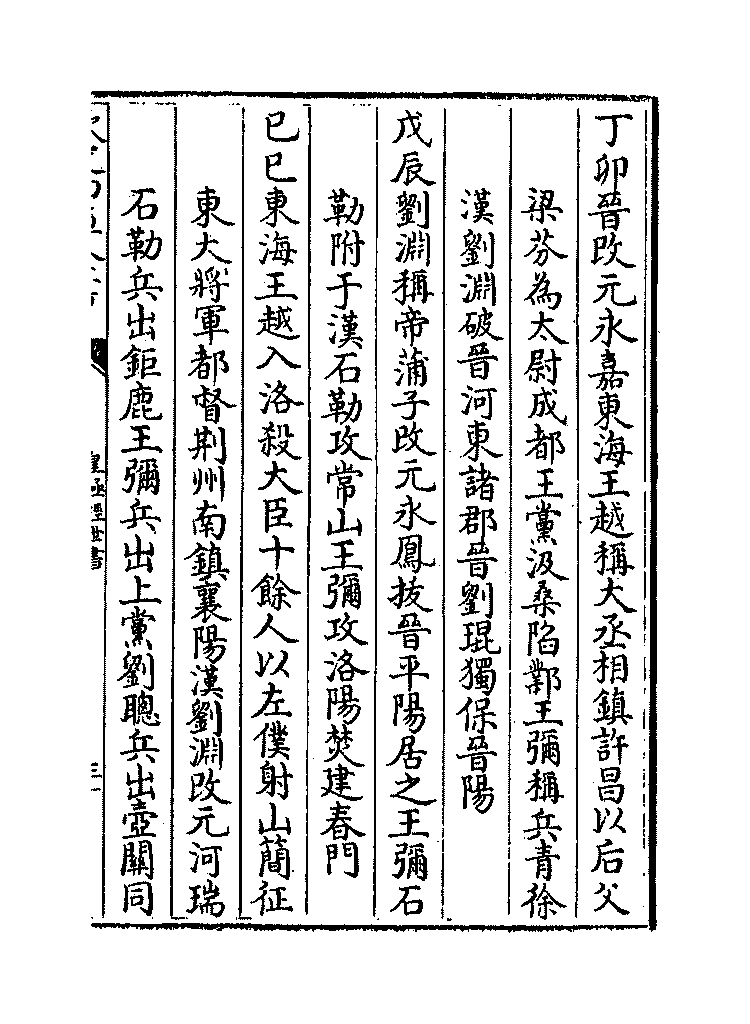 丁卯晉改元永嘉東海王越稱大丞相鎮許昌以后父
梁芬為太尉成都王黨汲桑陷鄴王彌稱兵青徐
漢劉淵破晉河東諸郡晉劉琨獨保晉陽
戊辰劉淵稱帝蒲子改元永鳳拔晉平陽居之王彌石
勒附于漢石勒攻常山王彌攻洛陽焚建春門
已巳東海王越入洛殺大臣十餘人以左僕射山簡征
東大將軍都督荆州南鎮襄陽漢劉淵改元河瑞
石勒兵出鉅鹿王彌兵出上黨劉聰兵出壺關同
皇極經世書